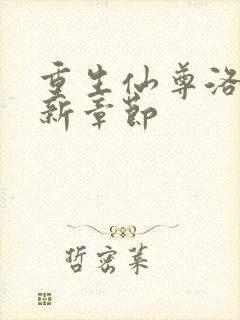 重生仙尊洛
新章节
哲密菜